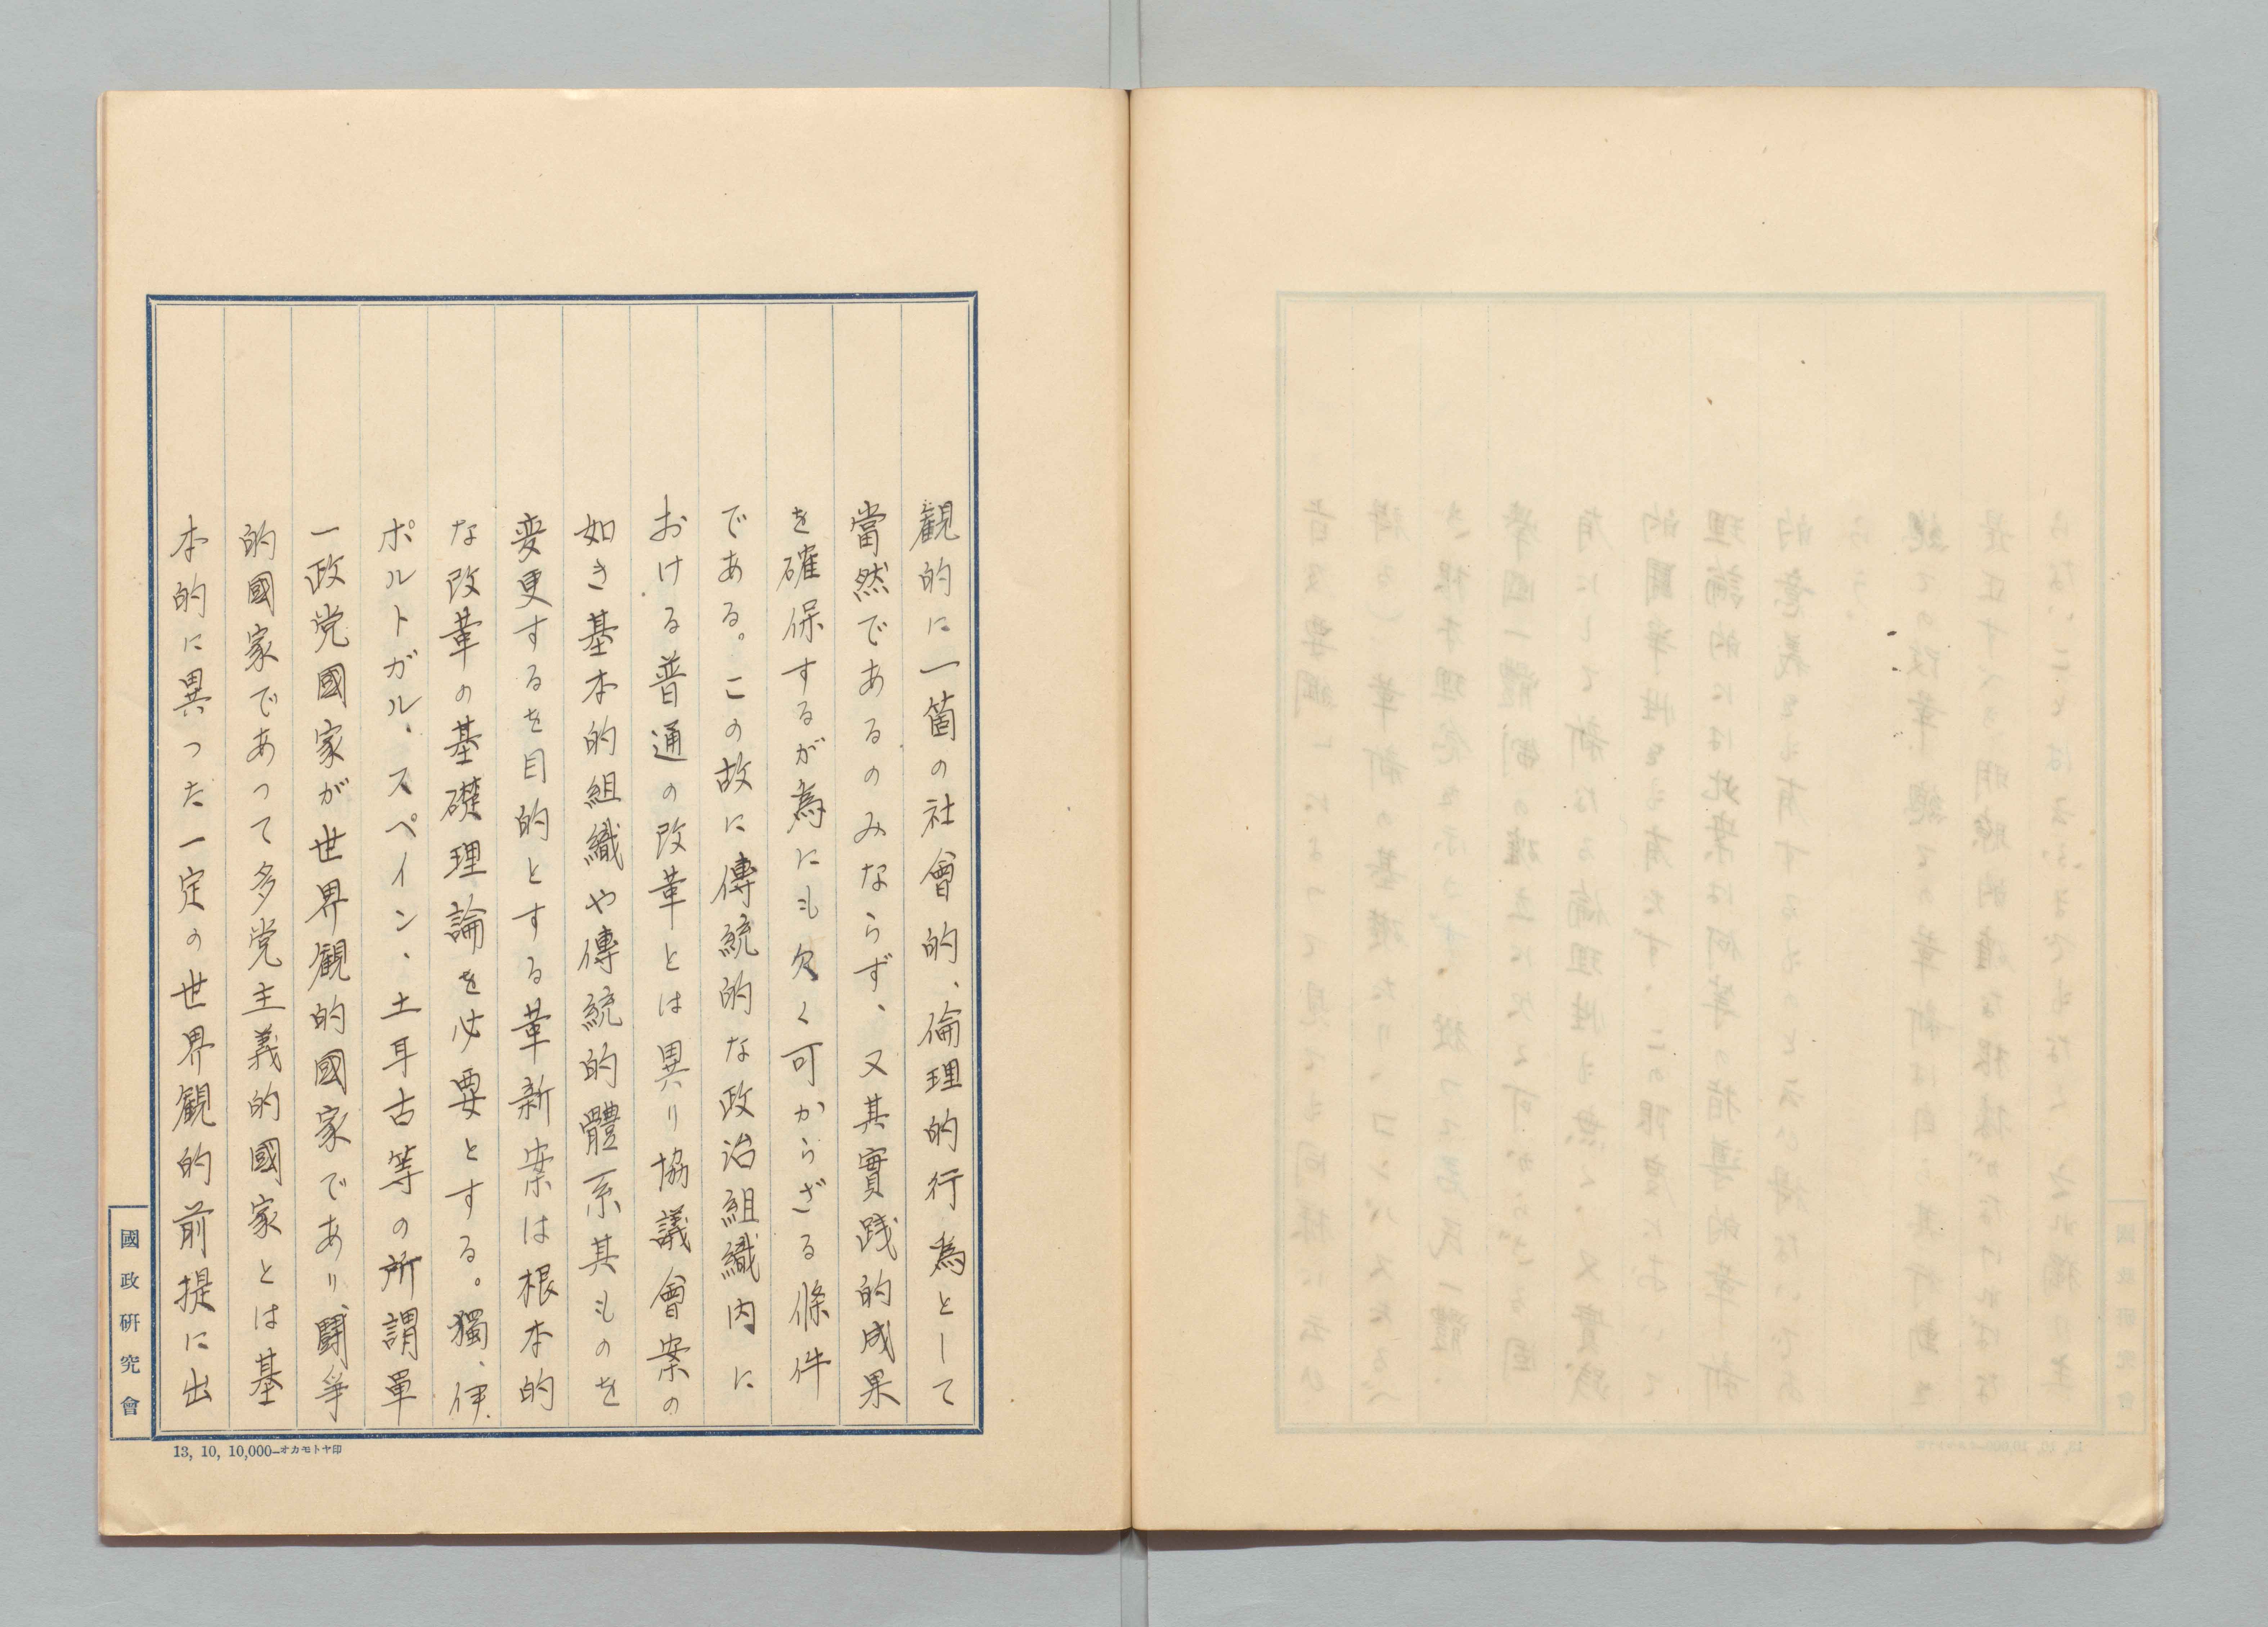 観的に一箇の社會的、倫理的行為として
當然であるのみならず、又其實践的成果
を確保するが為にも欠く可からざる條件
である。この故に傳統的な政治組織内に
おける普通の改革とは異り協議會案の
如き基本的組織や傳統的體系其ものを
変更するを目的とする革新案は根本的
な改革の基礎理論を必要とする。獨、伊、
ポルトガル、スペイン、土耳古等の所謂單
一政党國家が世界観的國家であり、闘爭
的國家であつて多党主義的國家とは基
本的に異つた一定の世界観的前提に出
國政研究會
13, 10, 10,000—オカモトヤ印